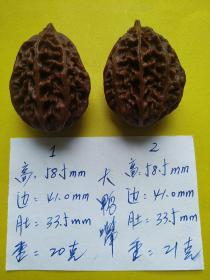 1
高：58.5mm
边：41.0mm
肚：33.5mm
重=20克
大鸭嘴
2
高：58.5mm
边：41.0mm
肚：33.5mm
重=21克